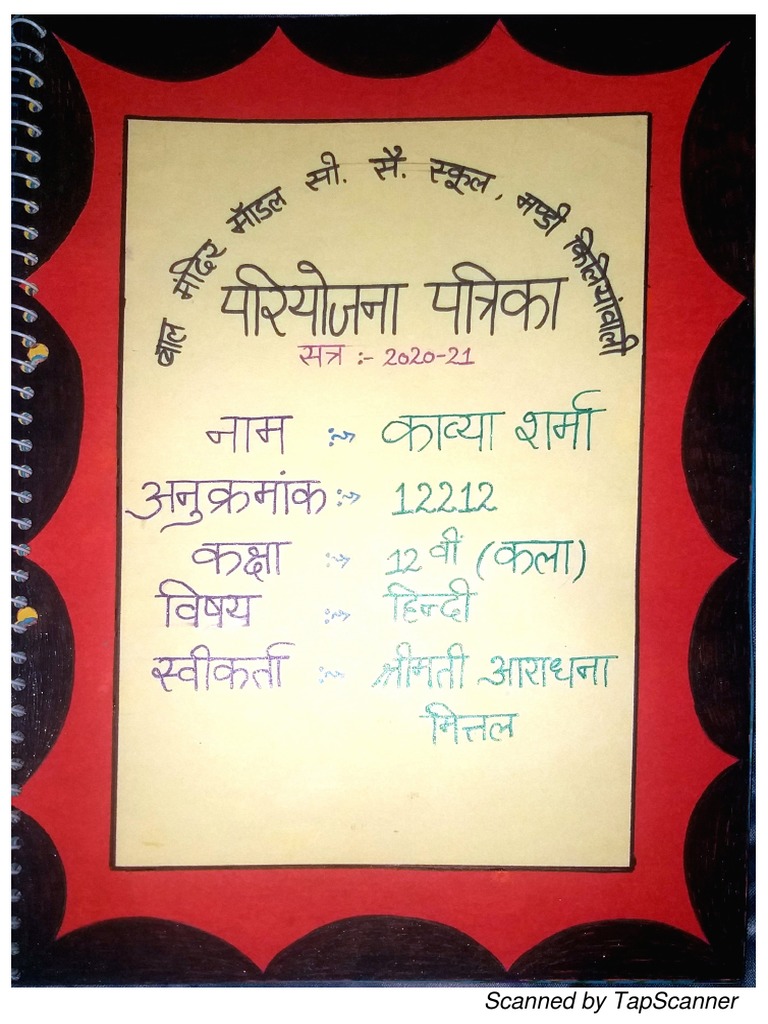 बाल मंदिर मॉडल सी. सै. स्कूल, मण्डी किलियांवाली
परियोजना पत्रिका
सत्र :- 2020-21
नाम :-> काव्या शर्मा
अनुक्रमांक :-> 12212
कक्षा :-> 12 वीं (कला)
विषय :-> हिन्दी
स्वीकर्ता :-> श्रीमती आराधना
मित्तल
Scanned by TapScanner